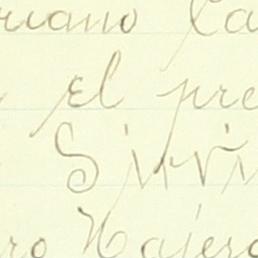 riano Ca
El pre
Sirvi
ro Najero